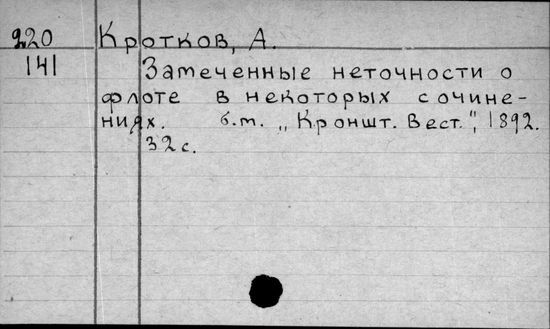 220 Кротков, А.
141 Замеченные неточности о
флоте в некоторых сочине-
ниях. б.т. „Кроншт. Вест.", 1892.
32 с.